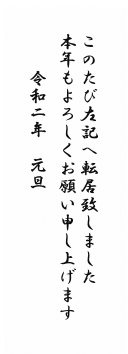 このたび左記へ転居致しました
本年もよろしくお願い申し上げます
令和二年　元旦